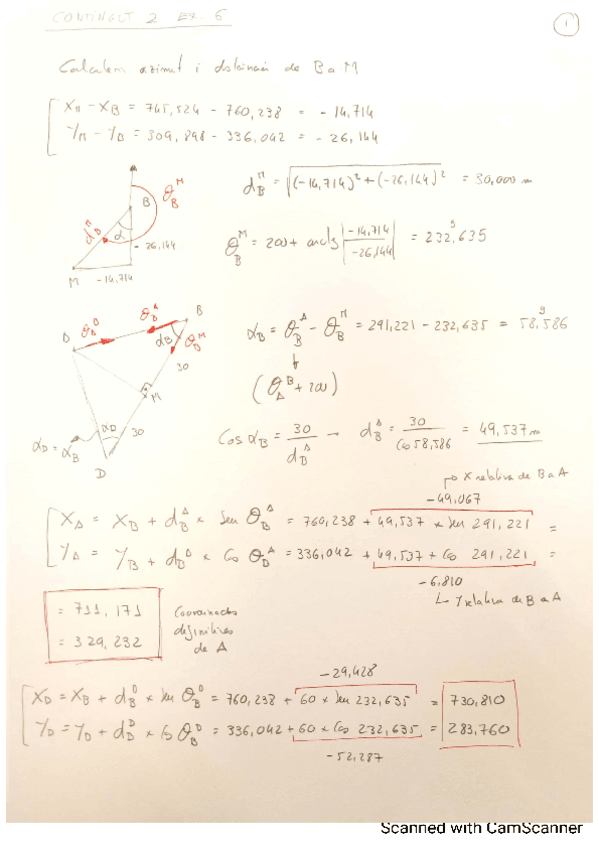 CONTINGUT 2 EX. 6
1
Calculem azimut i distància de B a M
X_M - X_B = 745,524 - 760,238 = - 14,714
Y_M - Y_B = 309,898 - 336,042 = - 26,144
d_B^M = √((-14,714)² + (-26,144)²) = 30,000 m
B
θ_B^M
d_B^M
α
- 26,144
M
-14,714
θ_B^M = 200 + arctg |-14,714 / -26,144| = 232,635^g
θ_A^B
θ_B^A
B
α_B
θ_B^M
30
M
α_D = α_B
α_D
30
D
α_B = θ_B^A - θ_B^M = 291,221 - 232,635 = 58,586^g
(θ_A^B + 200)
Cos α_B = 30 / d_B^A → d_B^A = 30 / Cos 58,586 = 49,537 m
X relativa de B a A
-49,067
X_A = X_B + d_B^A × Sen θ_B^A = 760,238 + 49,537 × Sen 291,221 =
Y_A = Y_B + d_B^A × Co θ_B^A = 336,042 + 49,537 + Co 291,221 =
-6,810
Y relativa de B a A
= 711,171
= 329,232
Coordenades
definitives
de A
-29,428
X_D = X_B + d_B^D × Sen θ_B^D = 760,238 + 60 × Sen 232,635 = 730,810
Y_D = Y_D + d_B^D × Co θ_B^D = 336,042 + 60 × Cos 232,635 = 283,760
-52,287
Scanned with CamScanner